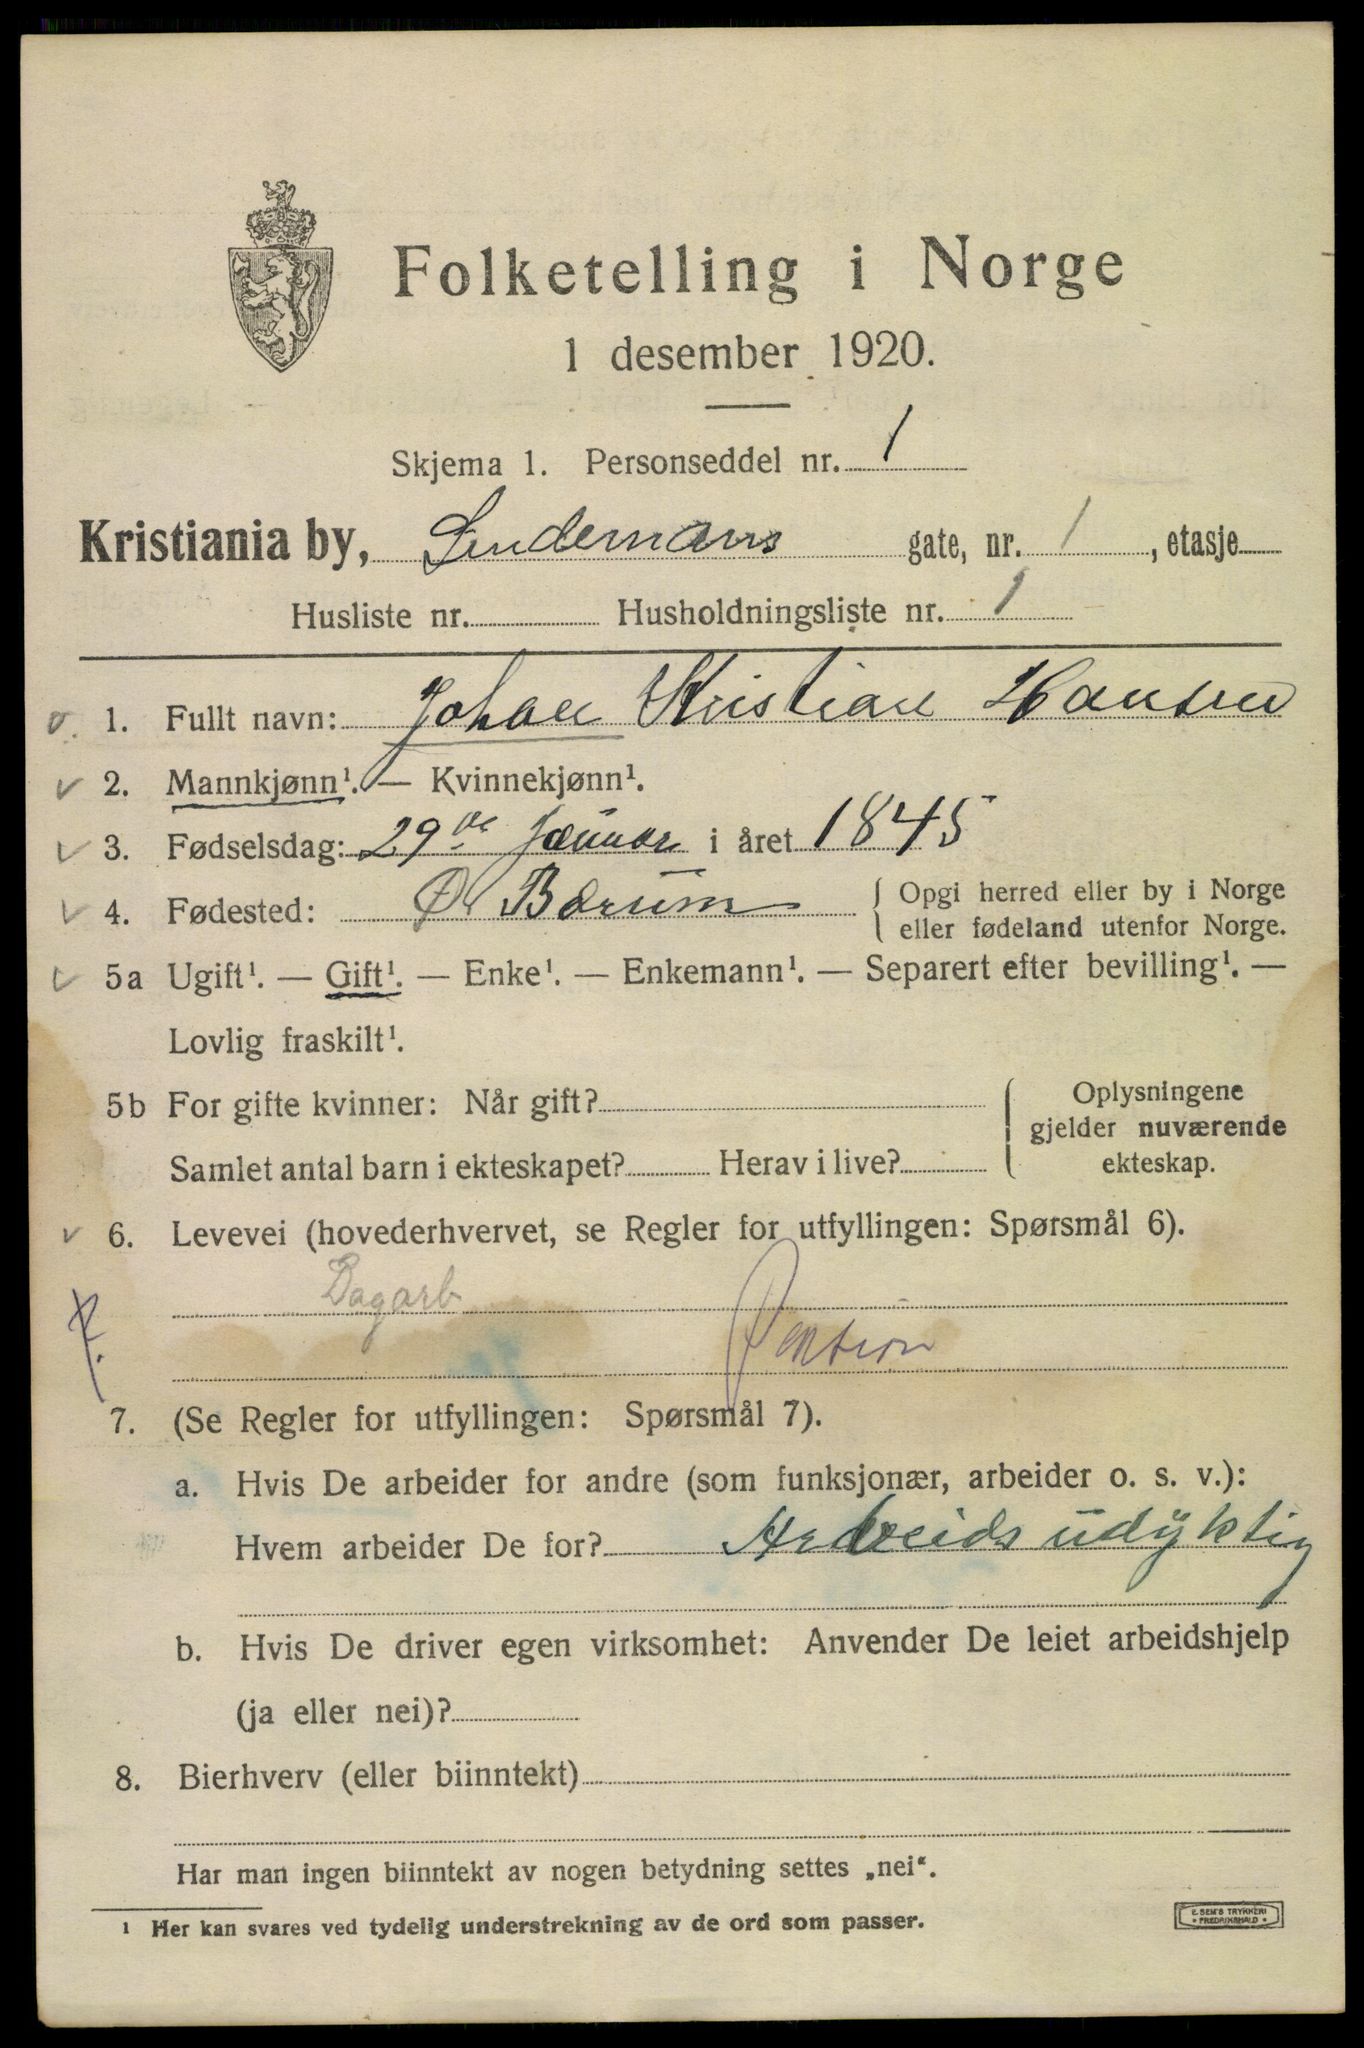 Folketelling i Norge
1 desember 1920.
Skjema 1. Personseddel nr. 1
Kristiania by, Lindemans gate, nr. 1, etasje
Husliste nr. Husholdningsliste nr. 1
1. Fullt navn: Johan Kristian Hansen
2. Mannkjønn¹. — Kvinnekjønn¹.
3. Fødselsdag: 29de Januar i året 1845
4. Fødested: Ø Bærum { Opgi herred eller by i Norge
eller fødeland utenfor Norge.
5a Ugift¹. — Gift¹. — Enke¹. — Enkemann¹. — Separert efter bevilling¹. —
Lovlig fraskilt¹.
5b For gifte kvinner: Når gift? { Oplysningene
gjelder nuværende
Samlet antal barn i ekteskapet? Herav i live? ekteskap.
6. Levevei (hovederhvervet, se Regler for utfyllingen: Spørsmål 6).
Dagarb
Pension
7. (Se Regler for utfyllingen: Spørsmål 7).
a. Hvis De arbeider for andre (som funksjonær, arbeider o. s. v.):
Hvem arbeider De for? Arbeids udyktig
b. Hvis De driver egen virksomhet: Anvender De leiet arbeidshjelp
(ja eller nei)?
8. Bierhverv (eller biinntekt)
Har man ingen biinntekt av nogen betydning settes „nei“.
¹ Her kan svares ved tydelig understrekning av de ord som passer.
E. SEM'S TRYKKERI
* FREDRIKSHALD *